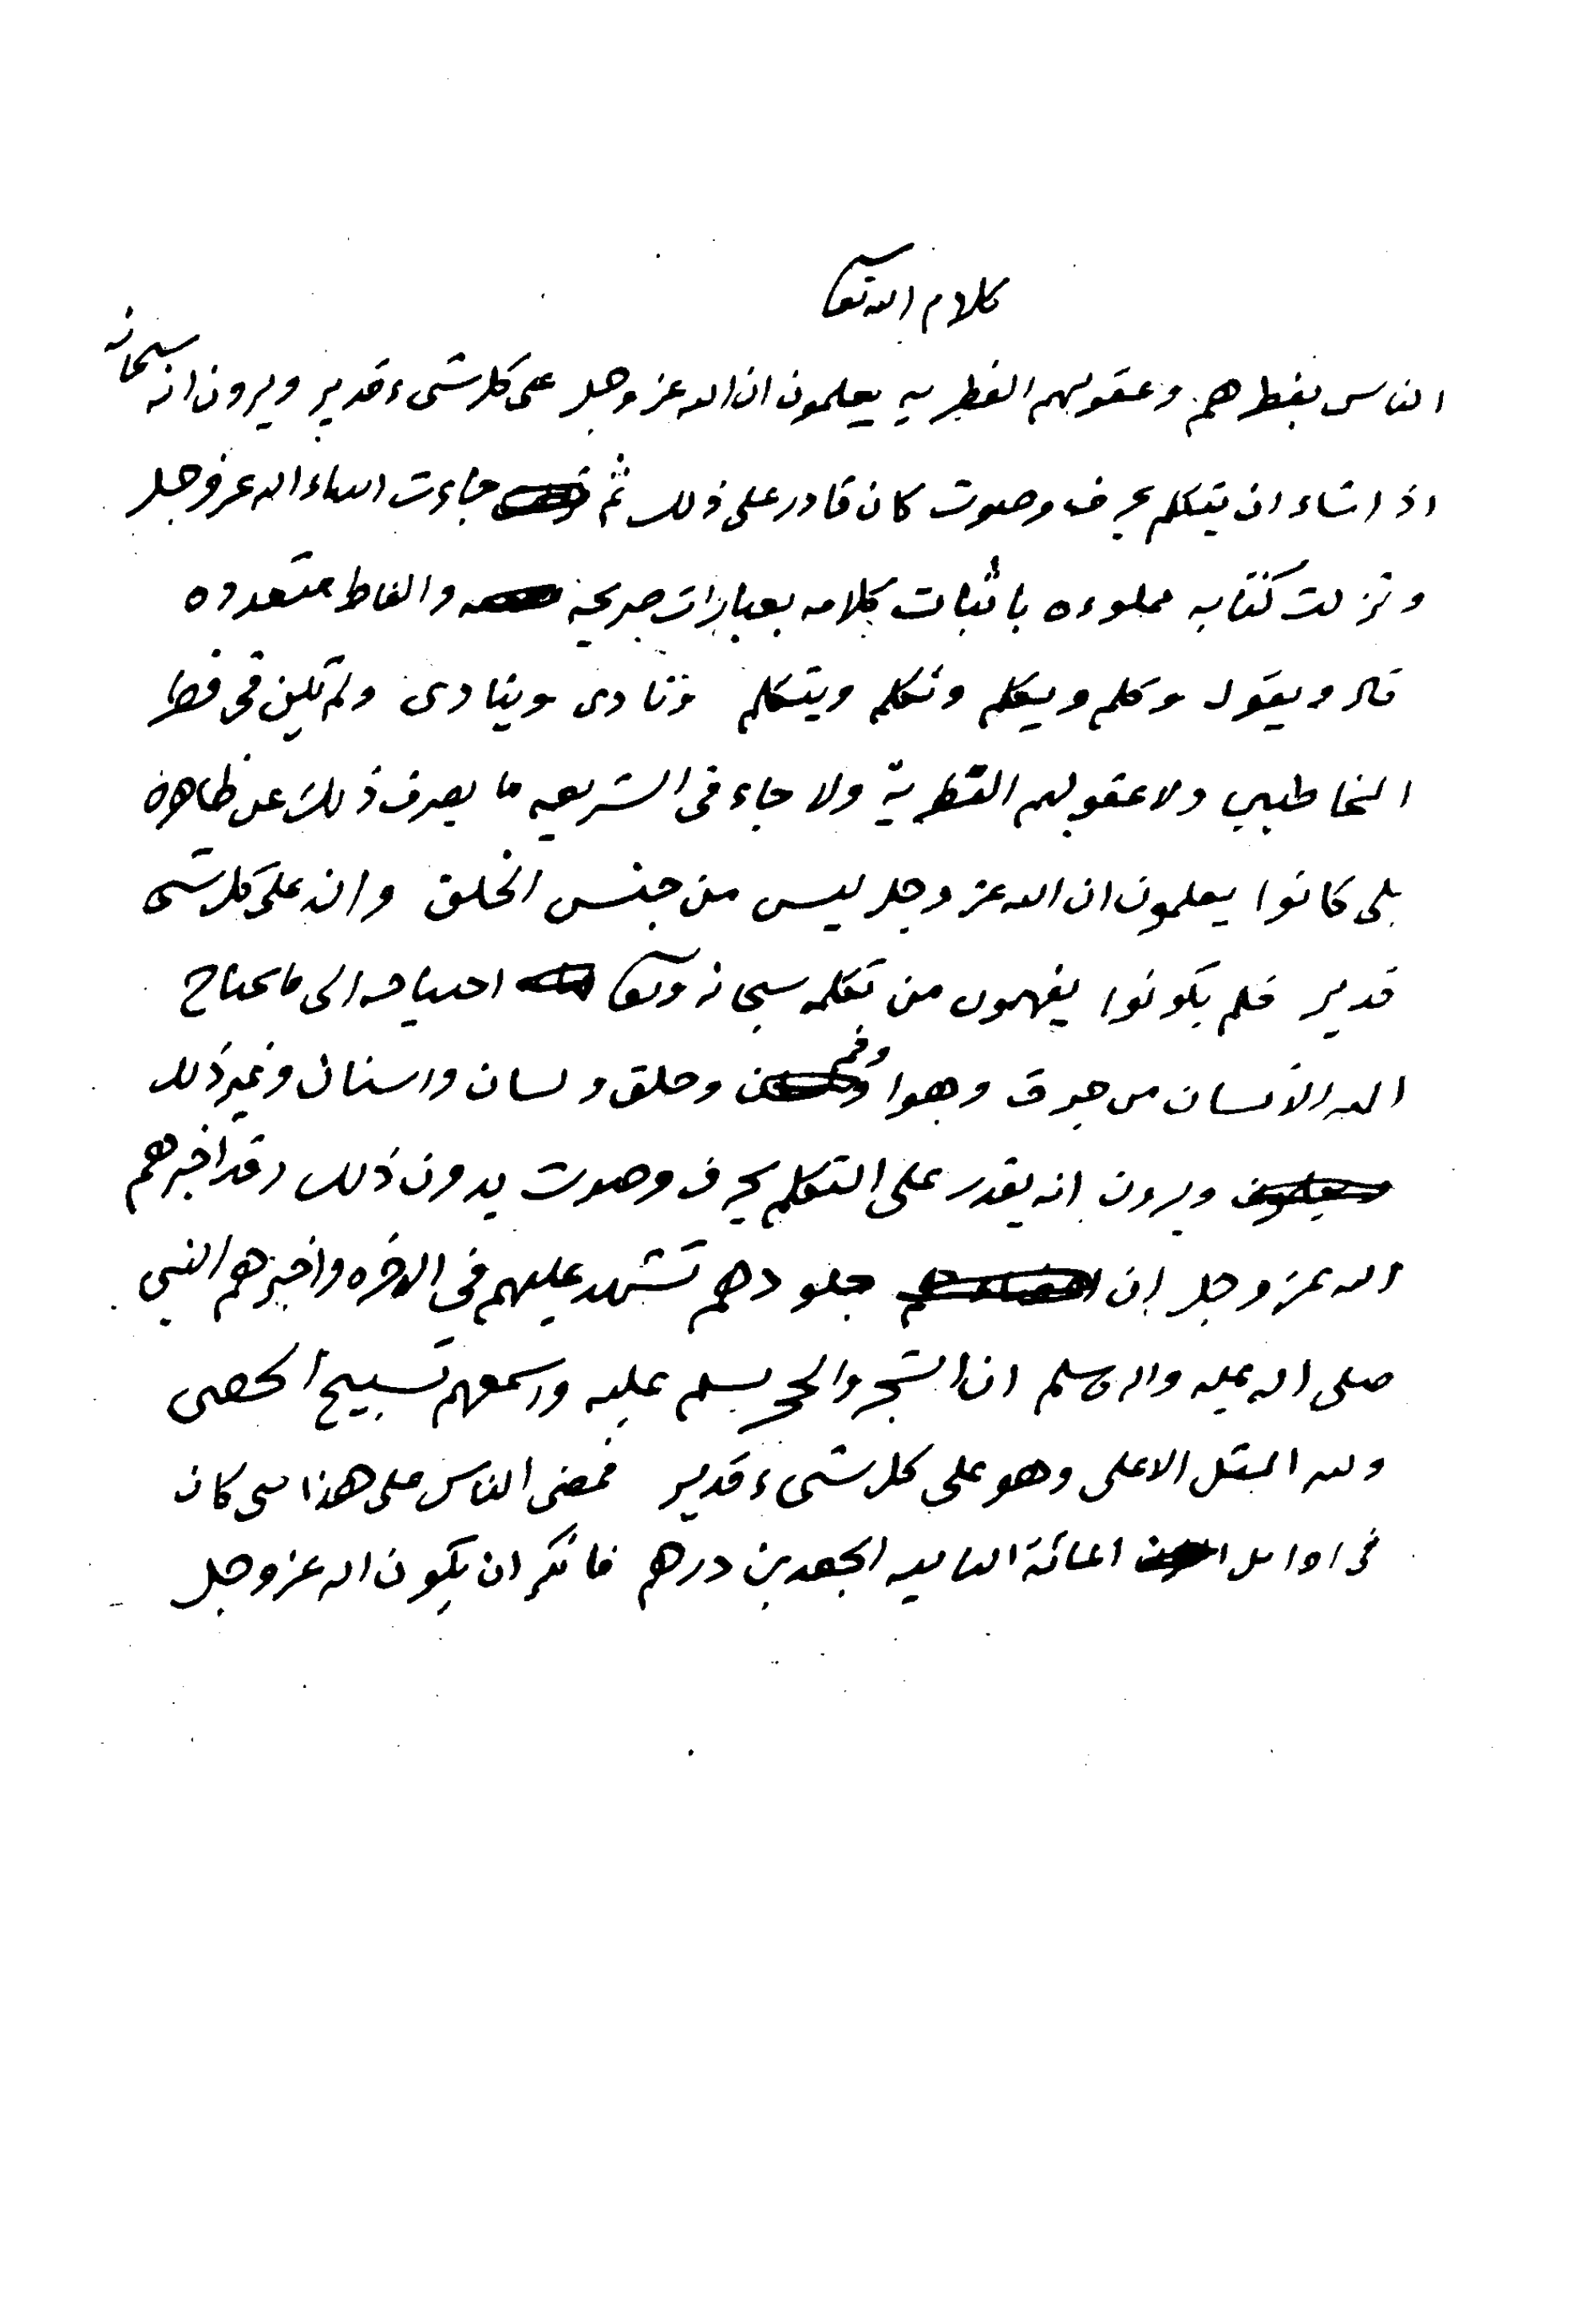 كلام الله تعا
الناس بفطرهم وعقولهم الفطريه يعلمون ان الله عز وجل على كل شىء قدير ويرون انه سبحانه
اذا شاء ان يتكلم بحرف وصوت كان قادر على ذلك ثم جاءت انبياء الله عز وجل
ونزلت كتبه مملوءه باثبات كلامه بعبارات صريحه والفاظ متعدده
قال ويقول وكلم ويكلم وتكلم ويتكلم ونادى وينادى ولم يكن فى فطر
المخاطبين ولا عقولهم الفطرية ولا جاء فى الشريعه ما يصرف ذلك عن ظاهره
بلى كانوا يعلمون ان الله عز وجل ليس من جنس الخلق وانه على كل شى
قدير فلم يكونوا يفهمون من تكلمه سبحانه وتعا احتياجه الى ما يحتاج
اليه الانسان من جوف وهوا وفم وحلق ولسان واسنان وغير ذلك
ويرون انه يقدر على التكلم بحرف وصوت بدون ذلك وقد اخبرهم
الله عز وجل ان جلودهم تشهد عليهم في الاخره واخبرهم النبي
صلى الله عليه واله وسلم ان الشجر والحجر يسلم عليه واسمعهم تسبيح الحصى
ولله المثل الاعلى وهو على كل شىء قدير فمضى الناس على هذا حتى كان
فى اوائل المائة الثانيه الجعد بن درهم فانكر ان يكون الله عز وجل